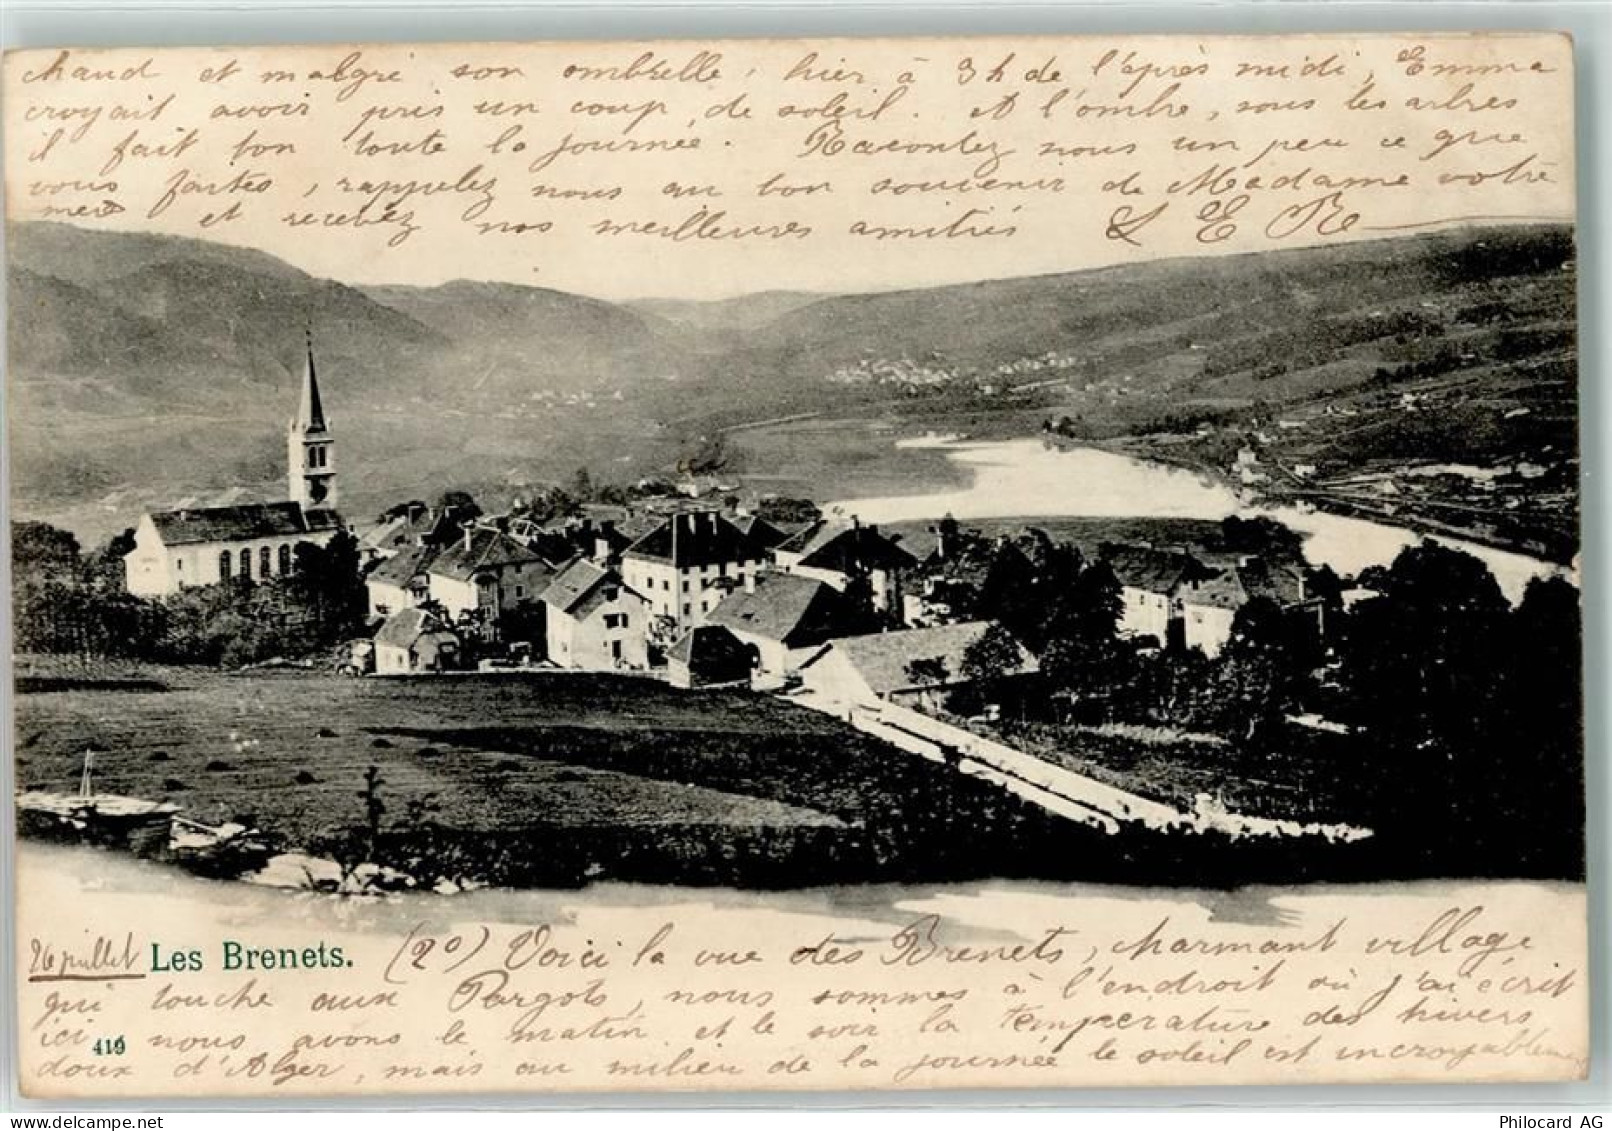 chaud et malgré son ombrelle, hier à 3h de l'après midi, Emma
croyait avoir pris un coup de soleil. et l'ombre, sous les arbres
il fait bon toute la journée. Racontez nous un peu ce que
vous faites, rappelez nous au bon souvenir de Madame votre
mère et recevez nos meilleures amitiés L E R
26 juillet Les Brenets. (2°) Voici la vue des Brenets, charmant village
qui touche aux Pargots, nous sommes à l'endroit où j'ai écrit
ici nous avons le matin et le soir la température des hivers
419
doux d'Alger, mais au milieu de la journée le soleil est incroyablement
Philocard AG